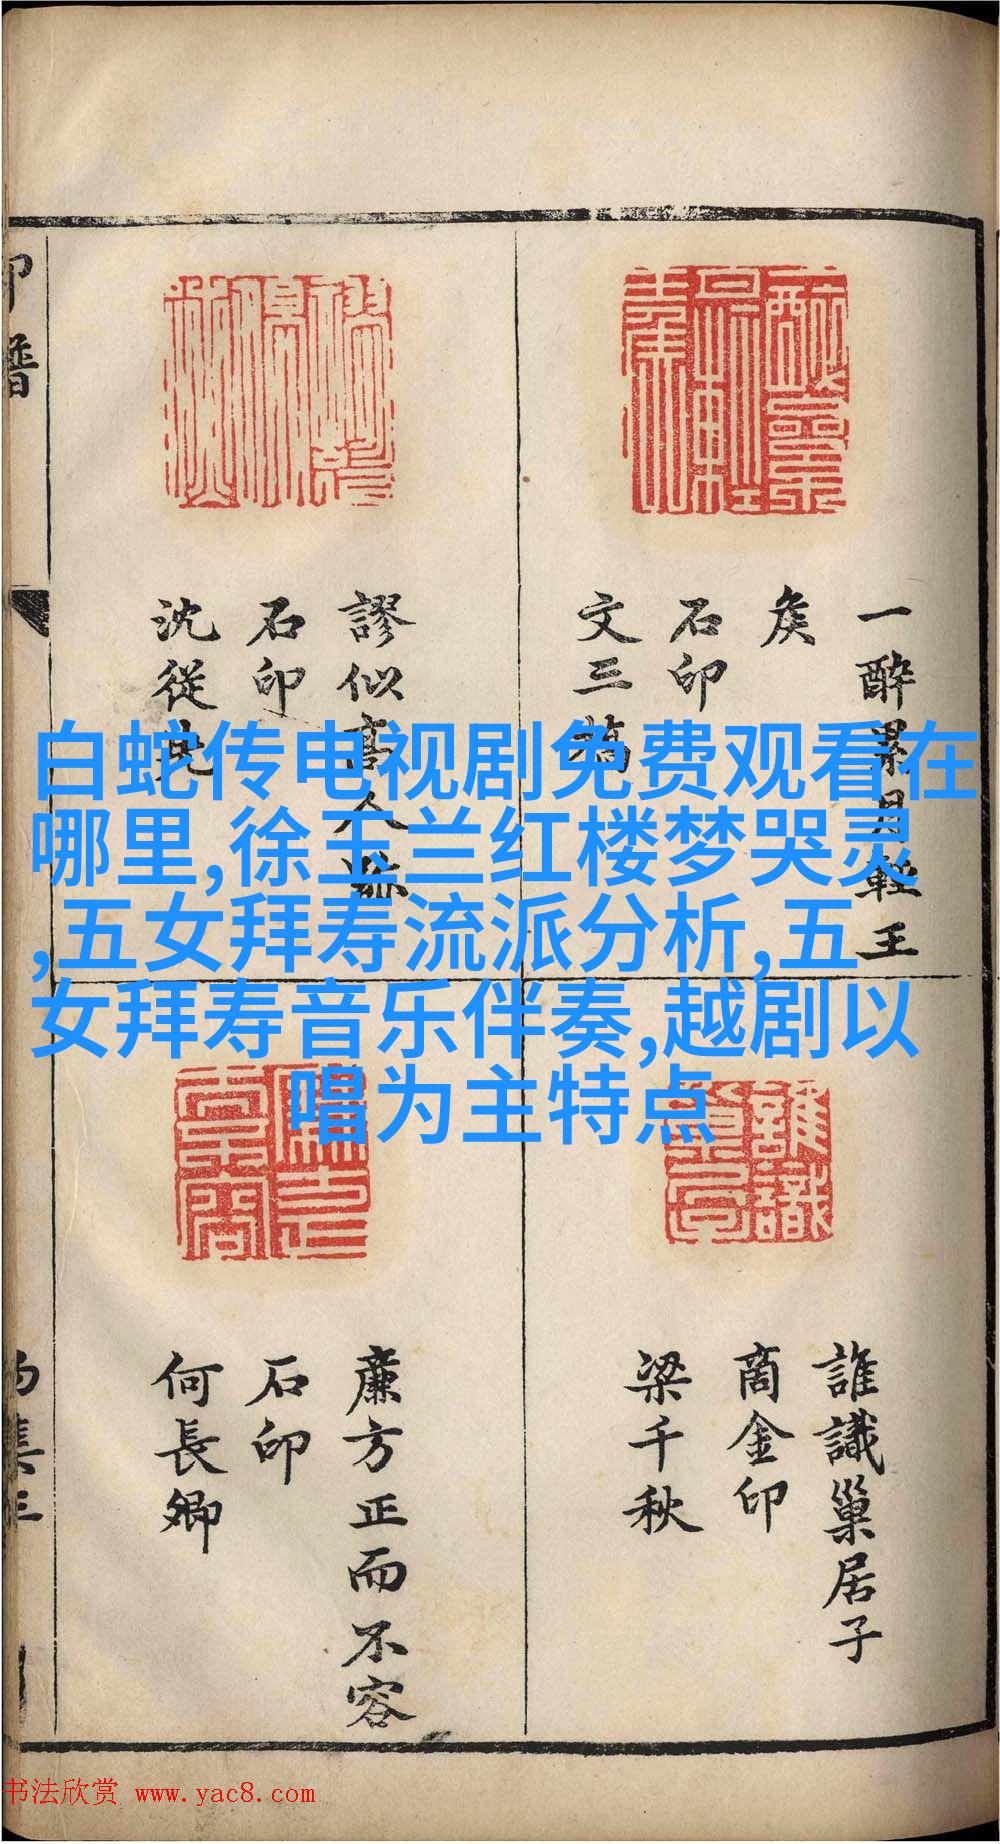 白蛇传电视剧免费观看在
哪里,徐玉兰红楼梦哭灵
,五女拜寿流派分析,五
女拜寿音乐伴奏,越剧以
唱为主特点
一醉累月輕王
矦
石印
文三橋
謬似高人跡
石印
沈從先
誰識巢居子
商金印
梁千秋
廉方正而不容
石印
何長卿
印譜
书法欣赏 www.yac8.com